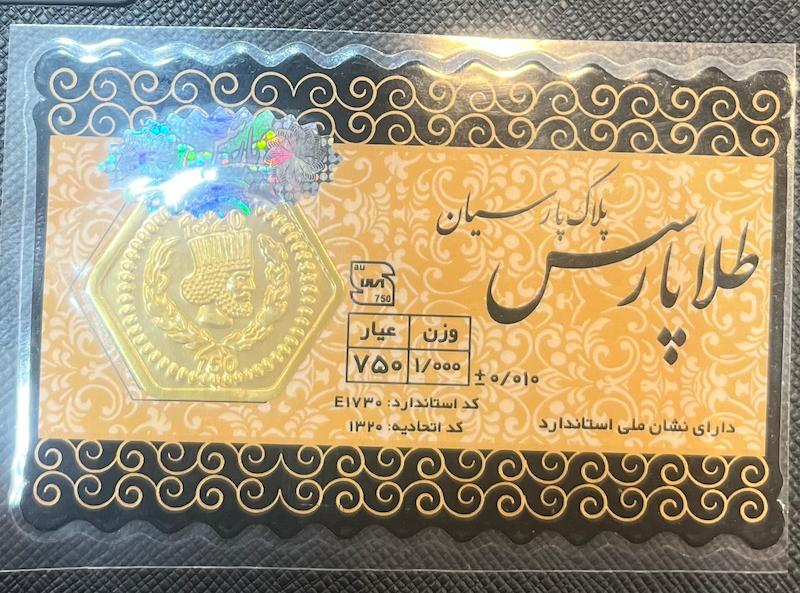 طلا پارسیس
پلاک پارسیان
au
750
وزن عیار
۱/۰۰۰ ۷۵۰
± ۰/۰۱۰
کد استاندارد: E۱۷۳۰
کد اتحادیه: ۱۳۲۰
دارای نشان ملی استاندارد
1320
750